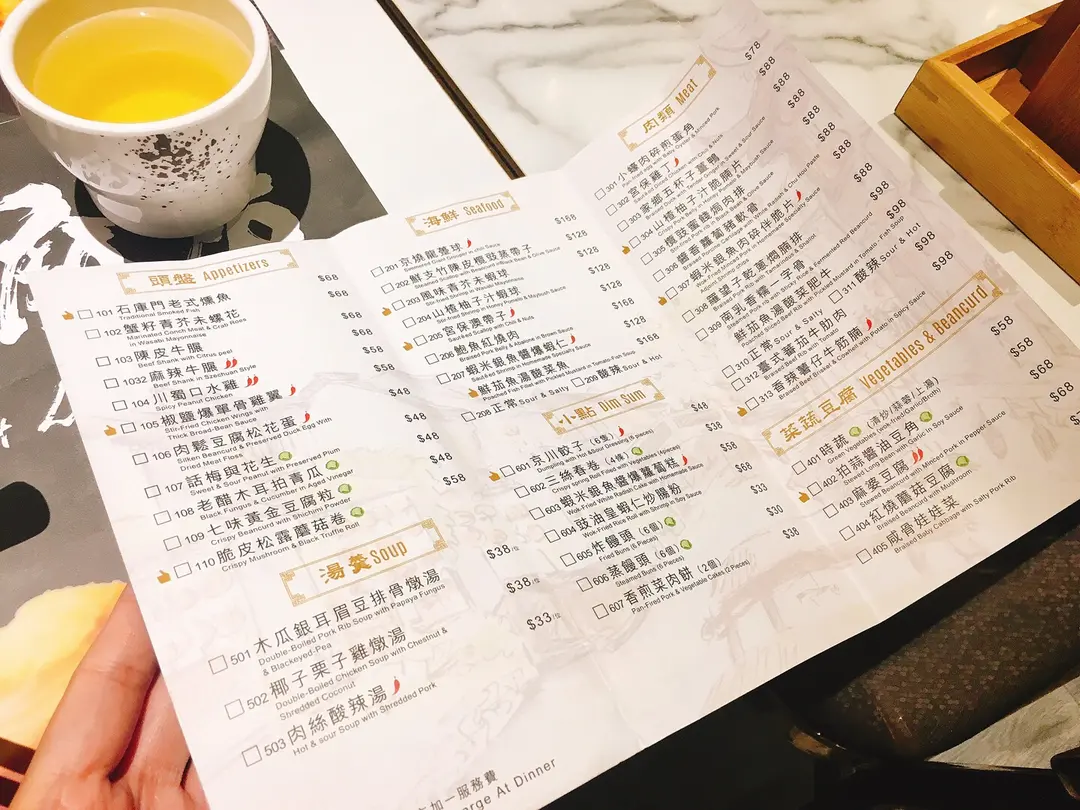 頭盤 Appetizers
101 石庫門老式燻魚 $68
Traditional Smoked Fish
102 蟹籽青芥末螺花 $68
Marinated Conch Meat & Crab Roes
in Wasabi Mayonnaise
103 陳皮牛腱 $68
Beef Shank with Citrus peel
1032 麻辣牛腱 $68
Beef Shank in Szechuan Style
104 川蜀口水雞 $58
Spicy Peanut Chicken
105 椒鹽爆單骨雞翼 $58
Stir-Fried Chicken Wings with
Thick Broad-Bean Sauce
106 肉鬆豆腐松花蛋 $48
Silken Beancurd & Preserved Duck Egg With
Dried Meat Floss
107 話梅與花生 $48
Sweet & Sour Peanut with Preserved Plum
108 老醋木耳拍青瓜 $48
Black Fungus & Cucumber in Aged Vinegar
109 七味黃金豆腐粒 $48
Crispy Beancurd with Shichimi Powder
110 脆皮松露蘑菇卷 $58
Crispy Mushroom & Black Truffle Roll
湯羹 Soup
501 木瓜銀耳眉豆排骨燉湯 $38/位
Double-Boiled Pork Rib Soup with Papaya Fungus
& Blackeyed-Pea
502 椰子栗子雞燉湯 $38/位
Double-Boiled Chicken Soup with Chestnut &
Shredded Coconut
503 肉絲酸辣湯 $33/位
Hot & sour Soup with Shredded Pork
加一服務費
arge At Dinner
海鮮 Seafood
201 京燒龍躉球 $168
202 鮮支竹陳皮欖豉蒸帶子 $128
203 風味青芥末蝦球 $128
Stir-fried Shrimp in Wasabi Mayonnaise
204 山楂柚子汁蝦球 $128
Stir-fried Shrimp in Honey Pomelo & Mayfush Sauce
205 宮保渡帶子 $128
Sautéed Scallop with Chili & Nuts
206 鮑魚紅燒肉 $168
Braised Pork Belly & Abalone in Brown Sauce
207 蝦米銀魚醬爆蝦仁 $128
Sautéed Shrimp in Homemade Specialty Sauce
鮮茄魚湯酸菜魚 $168
Poached Fish Fillet with Pickled Mustard in Tomato-Fish Soup
208 正常 Sour & Salty 209 酸辣 Sour & Hot
小點 Dim Sum
601 京川餃子（6隻） $48
Dumpling with Hot & Sour Dressing (6 pieces)
602 三絲春卷（4條） $38
Crispy Spring Roll Filled with Vegetables (4pieces)
603 蝦米銀魚醬爆蘿蔔糕 $58
Wok-Fried White Radish Cake with Homemade Sauce
604 豉油皇蝦仁炒腸粉 $68
Wok-Fried Rice Roll with Shrimp in Soy Sauce
605 炸饅頭（6個） $33
Fried Buns (6 Pieces)
606 蒸饅頭（6個） $30
Steamed Buns (6 Pieces)
607 香煎菜肉餅（2個） $38
Pan-Fired Pork & Vegetable Cakes (2 Pieces)
肉類 Meat
301 小蠔肉碎煎蛋角 $78
Pan-fried Egg with Baby Oyster & Minced Pork
302 宮保雞丁 $88
Sautéed Diced Chicken with Chili & Nuts
303 薑總五杯子薑鴨 $88
Braised Duck with Tender Ginger in Sweet & Sour Sauce
304 山楂柚子汁脆腩片 $88
Crispy Pork Belly in Honey Pomelo & Mayfush Sauce
305 欖豉蜜餞焗肉排 $88
306 醬香蘿蔔豬軟骨 $88
307 蝦米銀魚肉碎伴脆片 $88
308 羅望子乾蔥燜腩排 $88
Braised Pork Rib with Tamarindus & Shallot
309 南乳香糯一字骨 $98
Steamed Pork rib with Sticky Rice & Fermented Red Beancurd
鮮茄魚湯酸菜肥牛 $98
Poached Sliced Beef with Pickled Mustard in Tomato - Fish Soup
310 正常 Sour & Salty 311 酸辣 Sour & Hot
312 臺式蕃茄牛肋肉 $98
Braised Beef Rib with Tomato
313 香辣薯仔牛筋腩 $98
Braised Beef Brisket & Cowheel with Potato in Spicy Sauce
菜蔬豆腐 Vegetables & Beancurd
401 時蔬（清炒/蒜蓉/上湯） $58
Green Vegetables (wok-fried/Garlic/Broth)
402 拍蒜醬油豆角 $58
Stewed Long Bean with Garlic in Soy Sauce
403 麻婆豆腐 $68
Stewed Beancurd with Minced Pork in Pepper Sauce
404 紅燒蘑菇豆腐 $68
Braised Beancurd with Mushroom
405 咸骨娃娃菜
Braised Baby Cabbage with Salty Pork Rib